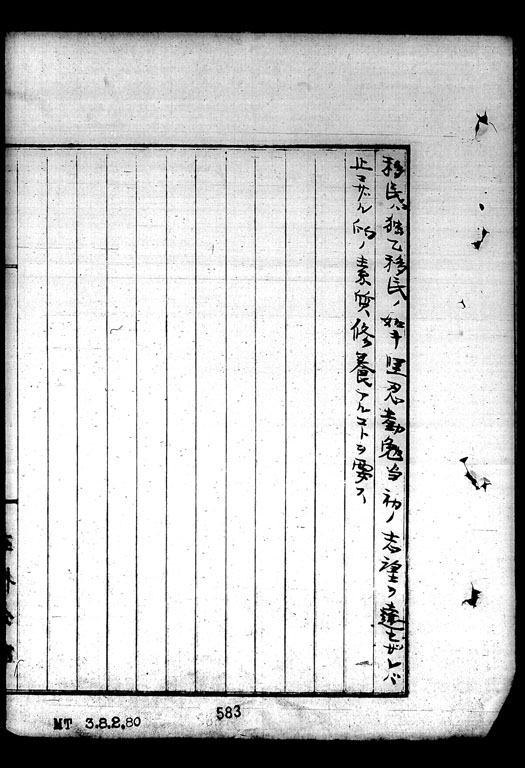 移民ハ独乙移民ノ如キ堅忍勤勉当初ノ志望ヲ達セザレバ
止マザル的ノ素質修養アルコトヲ要ス
MT 3.8.2.80
583